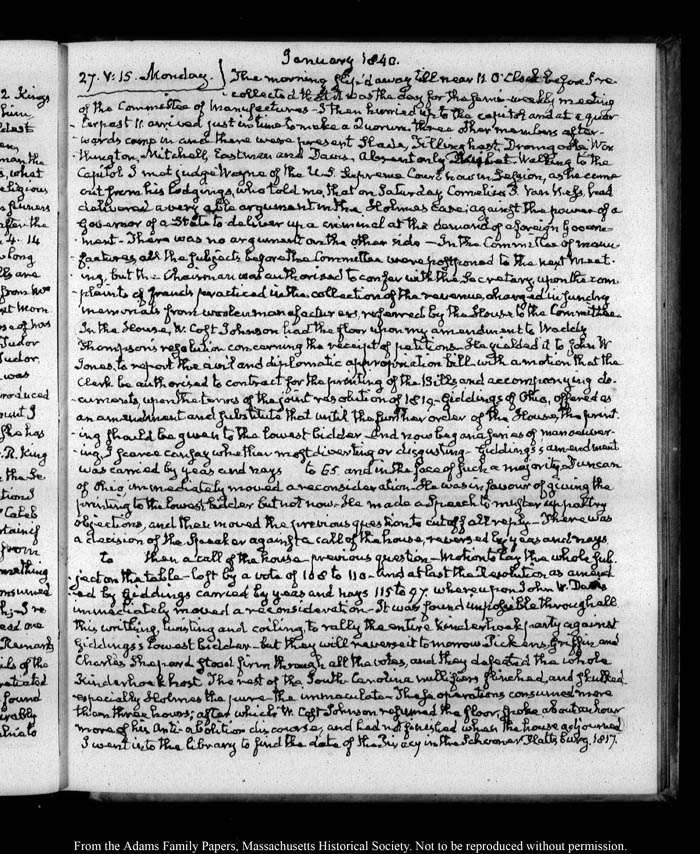 January 1840.
27. V:15. Monday. The morning slip'd away till near 11 O'Clock before I re-
collected that it was the day for the semi-weekly meeting
of the Committee of Manufactures - I then hurried up to the capitol and at a quar-
ter past 11 arrived just in time to make a Quorum three other members after-
wards came in and there were present Slade, Tillinghast, Dromgoole Wor
thington, Mitchell, Eastman and Davis. Absent only. Walking to the
Capitol I met judge Wayne of the U.S. Supreme Court now in Session, as he came
out from his lodgings, who told me, that on Saturday Cornelius P. Van Ness, had
delivered a very able argument in the Holmes Case; against the power of a
Governor of a State to deliver up a criminal at the demand of a foreign Govern-
ment - There was no argument on the other side - In the Committee of manu-
factures, all the subjects before the Committee were postponed to the next meet-
ing, but the Chairman was authorised to confer with the Secretary, upon the com-
plaints of frauds practiced in the collection of the revenue, charged in sundry
memorials from woolen manufacturers, referred by the House to the Committee
In the House, W. Cost Johnson had the floor upon my amendment to Waddy
Thompson's resolution concerning the receipt of petitions. He yielded it to John W
Jones, to report the civil and diplomatic appropriation bill with a motion that the
Clerk be authorised to contract for the printing of the Bills and accompanying do-
cuments, upon the terms of the joint resolution of 1819 - Giddings of Ohio, offered as
an amendment and substitute that until the further order of the House, the print-
ing should be given to the lowest bidder - and now began a series of manoeuver-
ing, I scarce can say whether most diverting or disgusting - Giddings's amendment
was carried by yeas and nays to 65 and in the face of such a majority, Duncan
of Ohio immediately moved a reconsideration - He was in favour of giving the
printing to the lowest bidder but not now. He made a Speech to muster up paltry
objections, and then moved the previous question, to cut off all reply - There was
a decision of the Speaker against a call of the house, reversed by yeas and nays
to then a call of the house - previous question - Motion to lay the whole sub-
ject on the table - lost by a vote of 108 to 110 - and at last the Resolution as amend
ed by Giddings carried by yeas and nays 115 to 97. whereupon John W. Davis
immediately moved a reconsideration - It was found impossible through all
this writhing, twisting and coiling, to rally the entire Kinderhook party against
Giddings's lowest bidder - but they will reverse it to morrow Pickens, Griffin, and
Charles Shepard stood firm through all the votes, and they defeated the whole
Kinderhook host. The rest of the South-Carolina nullifiers flinched, and skulked
especially Holmes the pure - the immaculate - These operations consumed more
than three hours; after which W. Cost Johnson resumed the floor, spoke about an hour
more of his Anti-abolition discourse, and had not finished when the house adjourned
I went into the library to find the date of the Piracy in the Schooner Plattsburg. 1817.
2 Kings
him
man the
, what
religious
after the
4. 14
long
Tudor
Tudor
was
produced
She has
R. King
the Se
Caleb
from
ead one
Remarks
ils of the
found
From the Adams Family Papers, Massachusetts Historical Society. Not to be reproduced without permission.